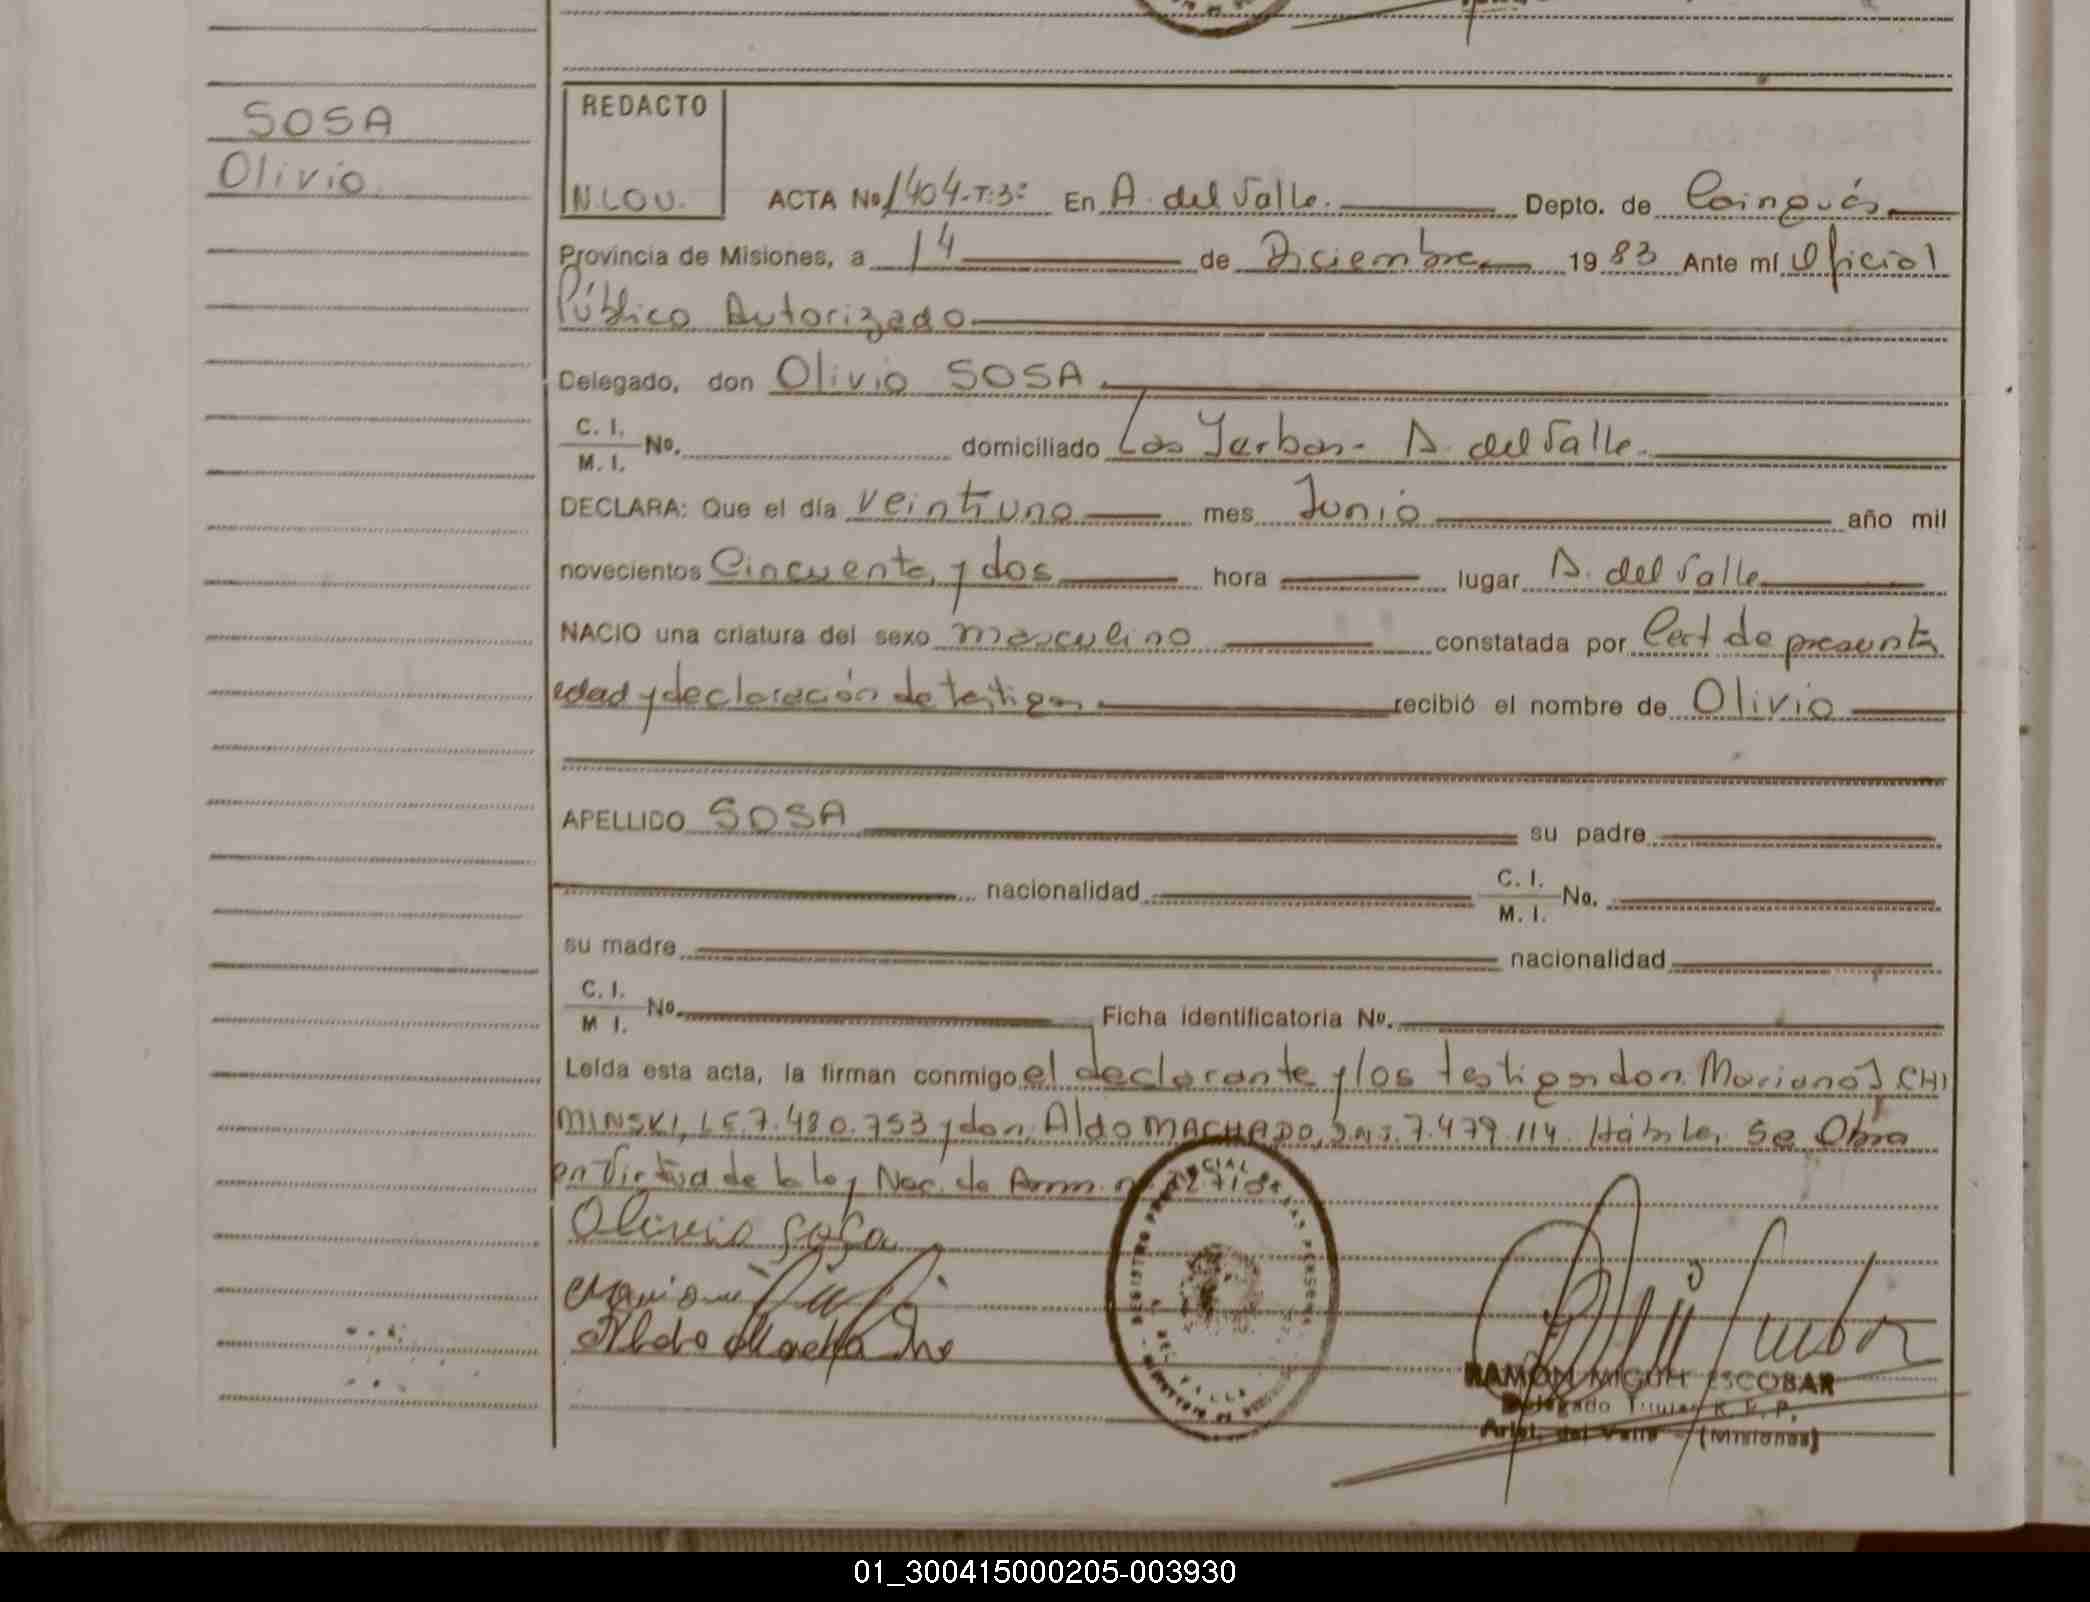 SOSA
Olivio
REDACTO
N.LOU.
ACTA No 1404-T:3º En A. del Valle. Depto. de Cainguás
Provincia de Misiones, a 14 de Diciembre 1983 Ante mí Oficial
Público Autorizado
Delegado, don Olivio SOSA
C. I. / M. I. No. domiciliado Las Yerbas - A. del Valle.
DECLARA: Que el día veintiuno mes Junio año mil
novecientos Cincuenta y dos hora lugar A. del Valle
NACIO una criatura del sexo masculino constatada por Cert de presunta
edad y declaración de testigos recibió el nombre de Olivio
APELLIDO SOSA su padre
nacionalidad C. I. / M. I. No.
su madre nacionalidad
C. I. / M I. No. Ficha identificatoria No.
Leída esta acta, la firman conmigo el declarante y los testigos don Mariano J CHI
MINSKI, LE.7.480.753 y don Aldo MACHADO, 7.479.114. Hábiles, Se Obra
en Virtud de la ley Nac. de Amn. nº
Olivio Sosa
Aldo Machado
REGISTRO PROVINCIAL DE LAS PERSONAS
DEL VALLE
RAMON MIGUEL ESCOBAR
Delegado Titular R. P. P.
Arist. del Valle - (Misiones)
01_300415000205-003930